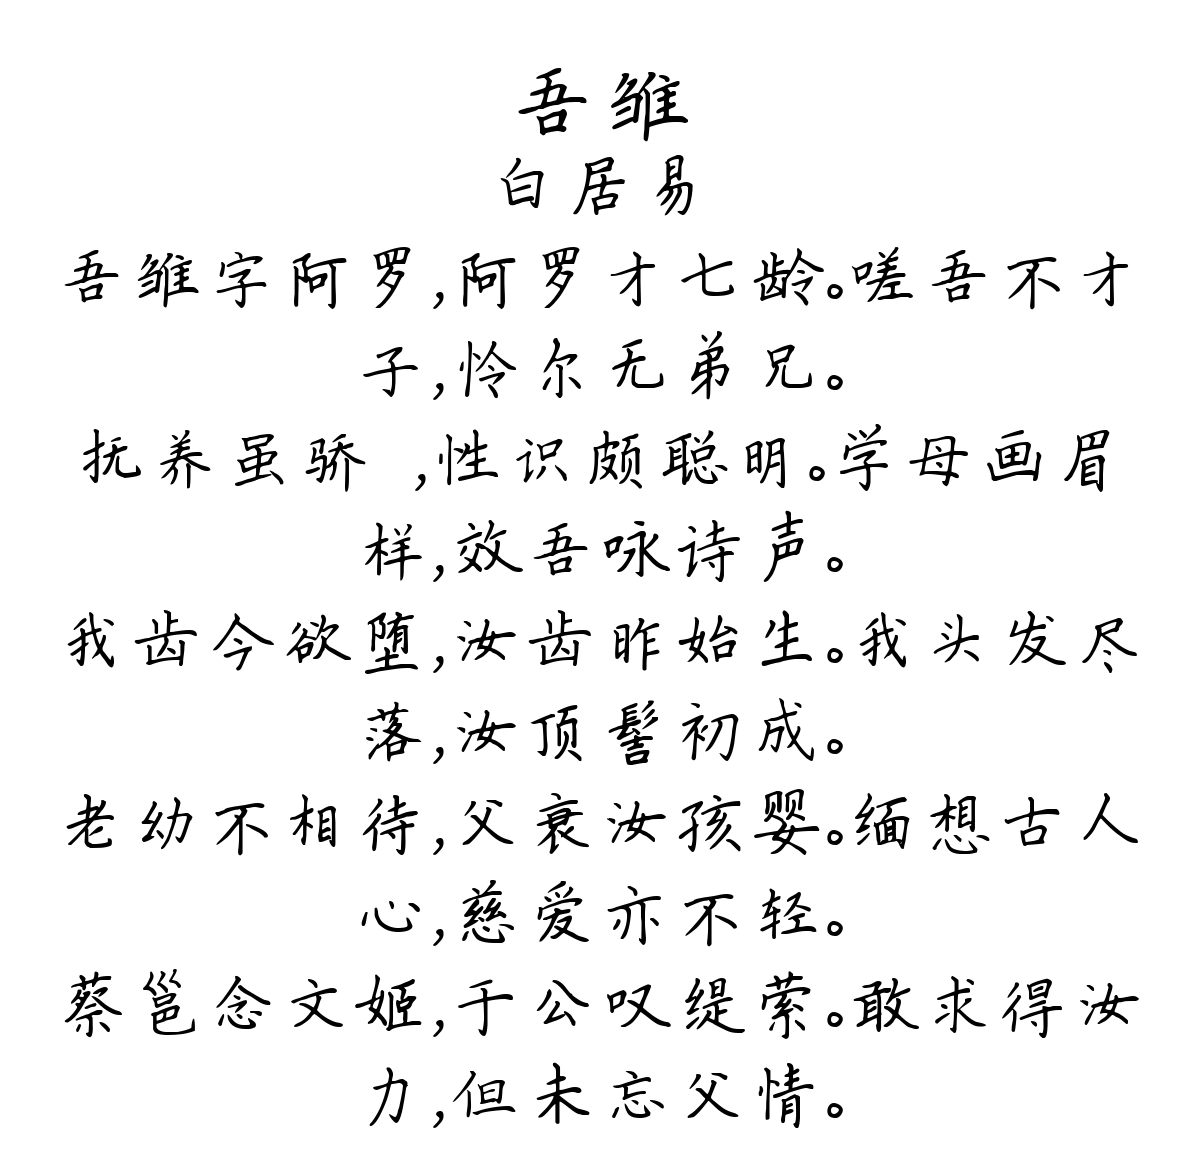 吾雏
白居易
吾雏字阿罗,阿罗才七龄。嗟吾不才
子,怜尔无弟兄。
抚养虽骄 ,性识颇聪明。学母画眉
样,效吾咏诗声。
我齿今欲堕,汝齿昨始生。我头发尽
落,汝顶髻初成。
老幼不相待,父衰汝孩婴。缅想古人
心,慈爱亦不轻。
蔡邕念文姬,于公叹缇萦。敢求得汝
力,但未忘父情。